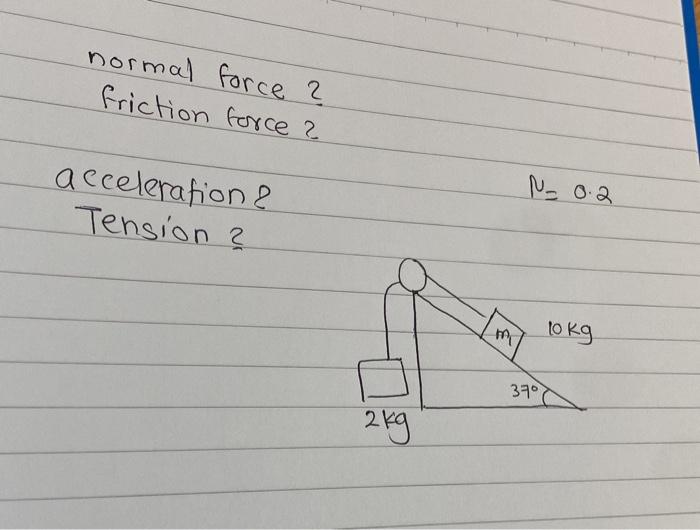 normal force ?
friction force ?
acceleration?
Tension ?
μ= 0.2
m
10kg
37°
2kg